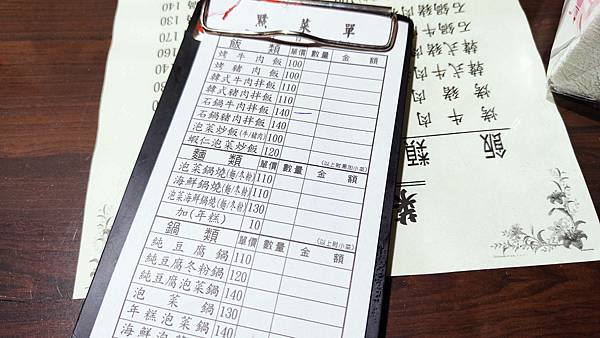 點菜單
飯類 單價 數量 金額
烤牛肉飯 100
烤豬肉飯 100
韓式牛肉拌飯 110
韓式豬肉拌飯 110
石鍋牛肉拌飯 140
石鍋豬肉拌飯 140
泡菜炒飯(牛/豬肉) 100
蝦仁泡菜炒飯 120
麵類 單價 數量 金額
泡菜鍋燒(麵/冬粉) 110
海鮮鍋燒(麵/冬粉) 110
泡菜海鮮鍋燒(麵/冬粉) 130
加(年糕) 10
鍋類 單價 數量 金額 (以上附小菜)
純豆腐鍋 110
純豆腐冬粉鍋 120
純豆腐泡菜鍋 140
泡菜鍋 130
年糕泡菜鍋 140
海鮮泡
飯類
烤牛肉
烤豬肉
韓式牛肉
韓式豬肉
石鍋牛
石鍋豬肉